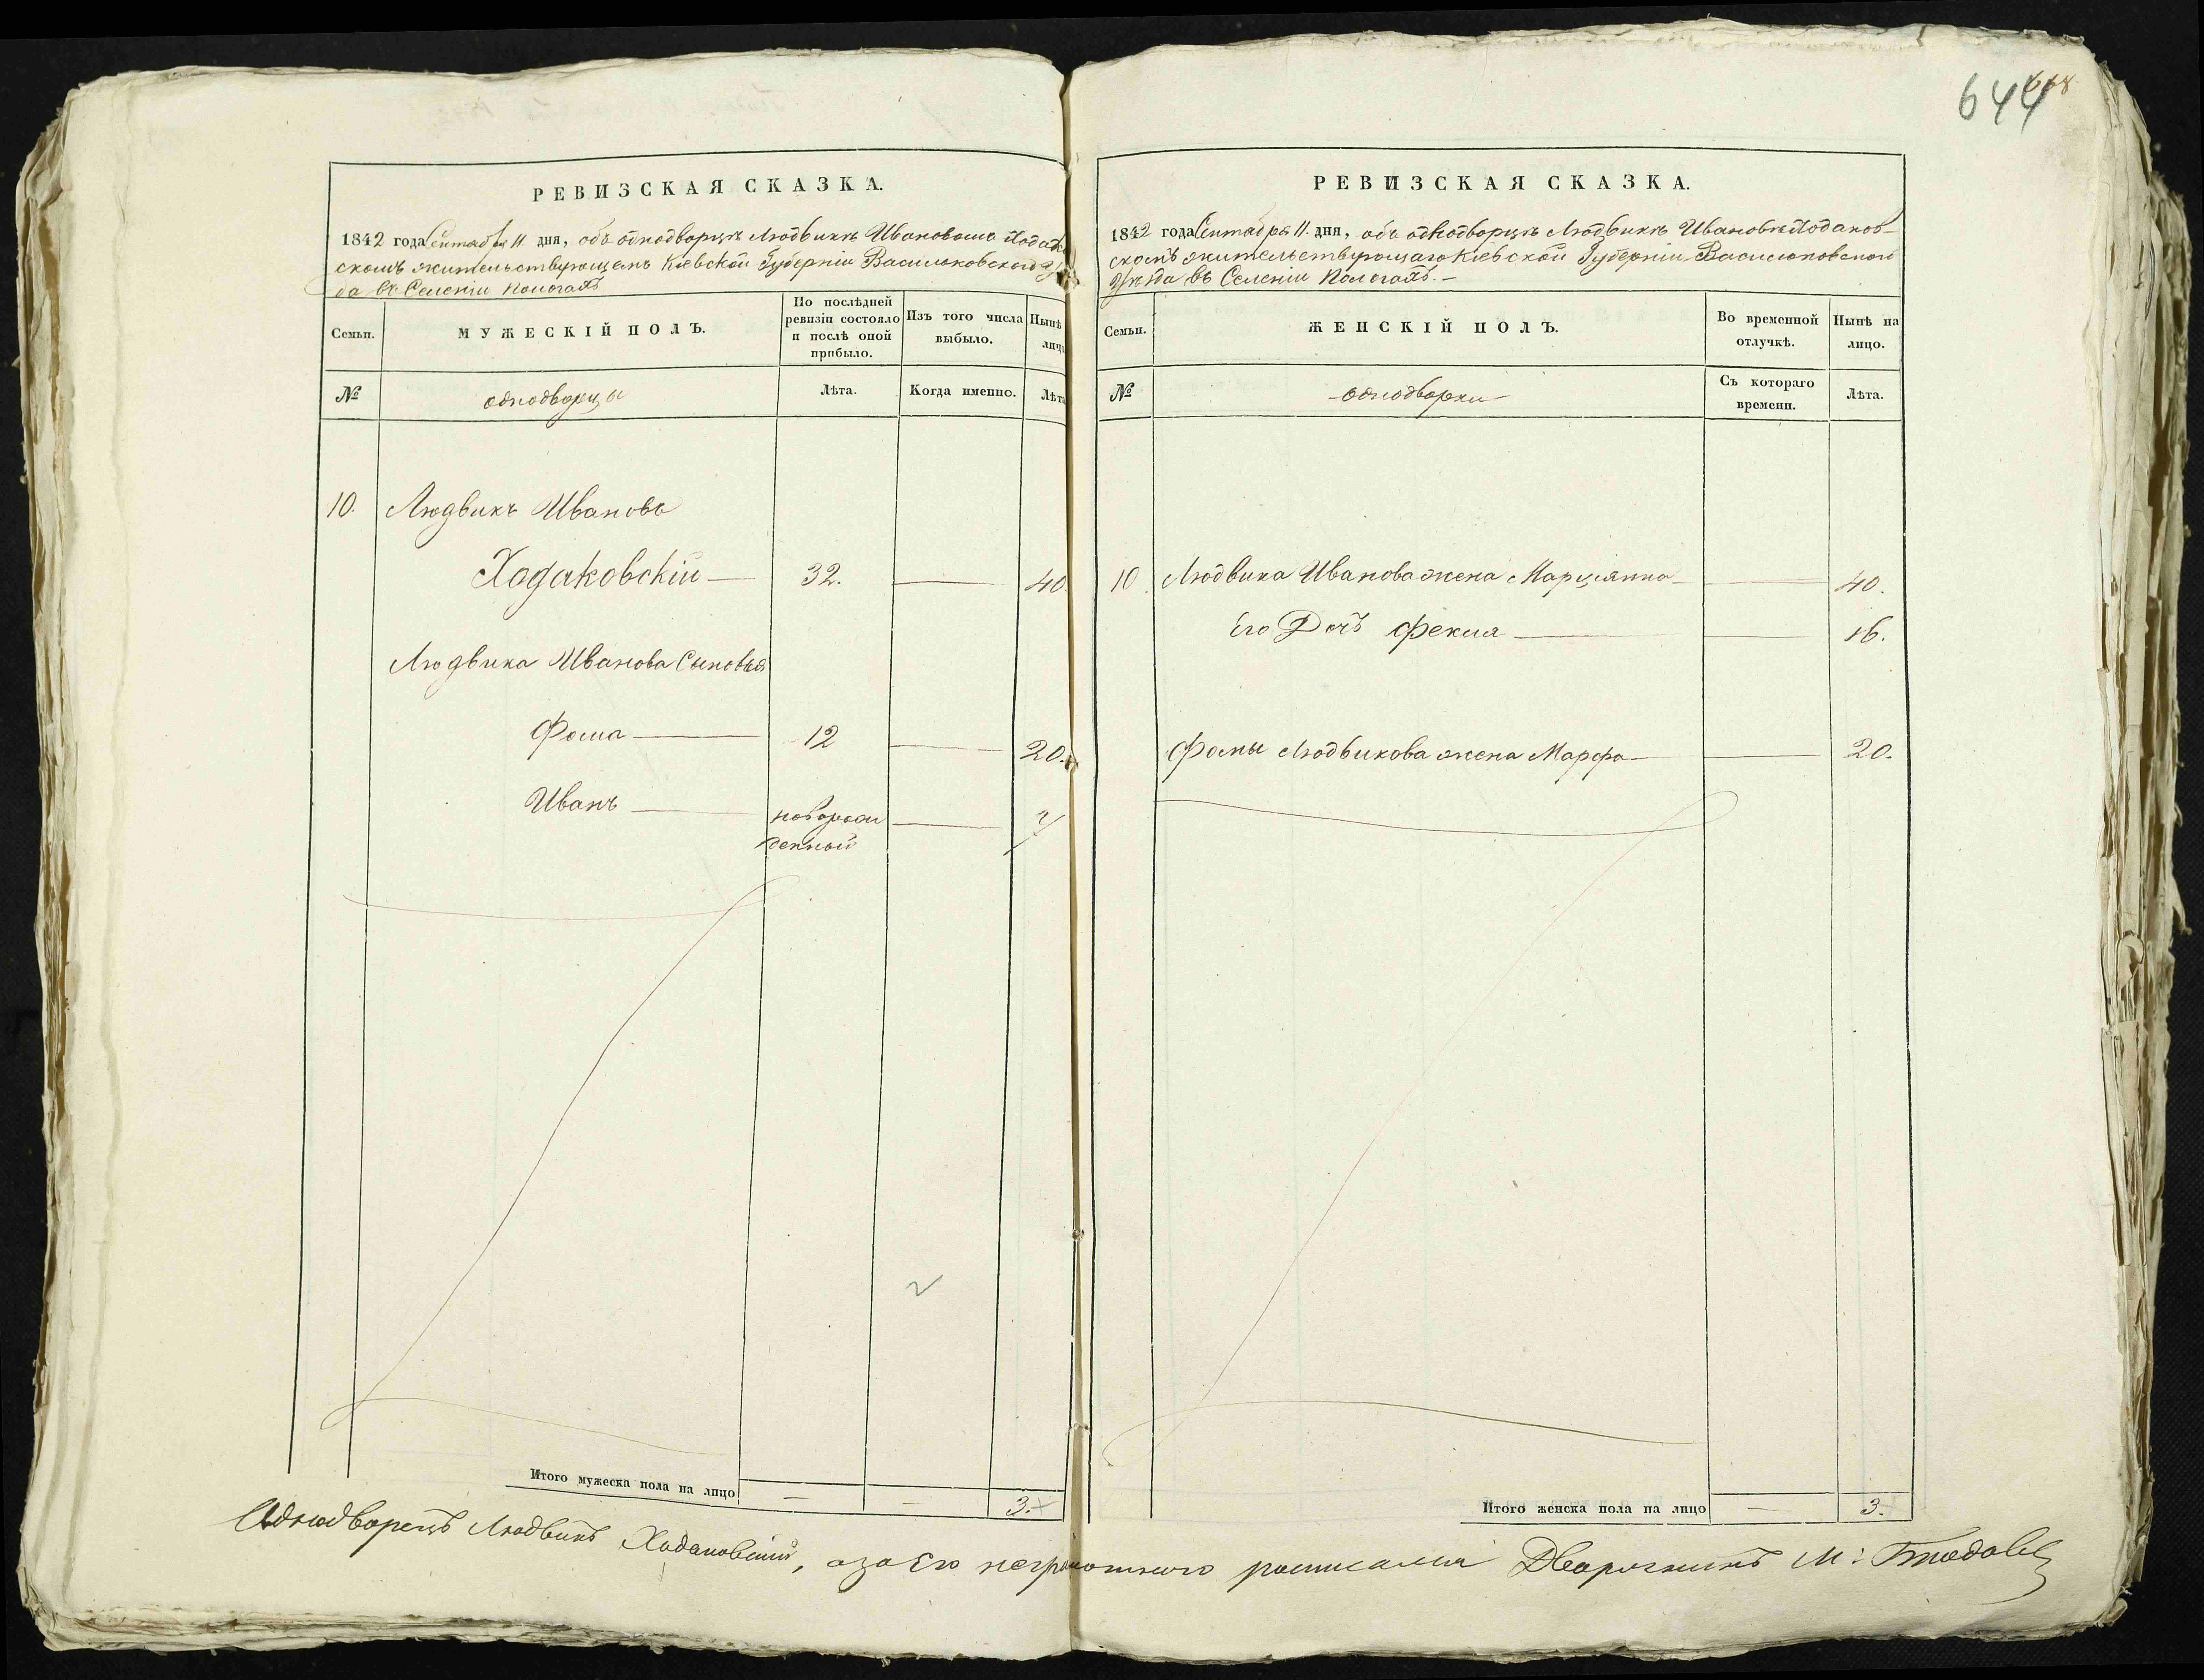 644
РЕВИЗСКАЯ СКАЗКА.
1842 года Сентября 11 дня, объ однодворцѣ Людвикѣ Ивановомъ Ходаков
скомъ жительствующемъ Кіевской Губерніи Васильковского
да въ Селеніи Пологахъ
Семьи.
МУЖЕСКІЙ ПОЛЪ.
По послѣдней
ревизіи состояло
и послѣ оной
прибыло.
Изъ того числа
выбыло.
Нынѣ
лицо
№
однодворцы
Лѣта.
Когда именно.
Лѣта
10. Людвикъ Ивановъ
Ходаковскій — 32. — 40.
Людвика Иванова Сыновья
Фома — 12 — 20.
Иванъ — новорож
денный —
Итого мужеска пола на лицо — — 3.
РЕВИЗСКАЯ СКАЗКА.
1842 года Сентября 11. дня, объ однодворцѣ Людвикѣ Ивановѣ Ходаков-
скомъ жительствующаго Кіевской Губерніи Васильковского
уѣзда въ Селеніи Пологахъ. —
Семьи.
ЖЕНСКІЙ ПОЛЪ.
Во временной
отлучкѣ.
Нынѣ на
лицо.
№
однодворки
Съ котораго
времени.
Лѣта.
10. Людвика Иванова жена Марціянна — — 40.
Его Дочъ Фекла — — 16.
Фомы Людвикова жена Марфа — — 20.
Итого женска пола на лицо — 3.
Однодворецъ Людвикъ Ходаковскій, а за Его неграмотного росписался Дворянинъ М: